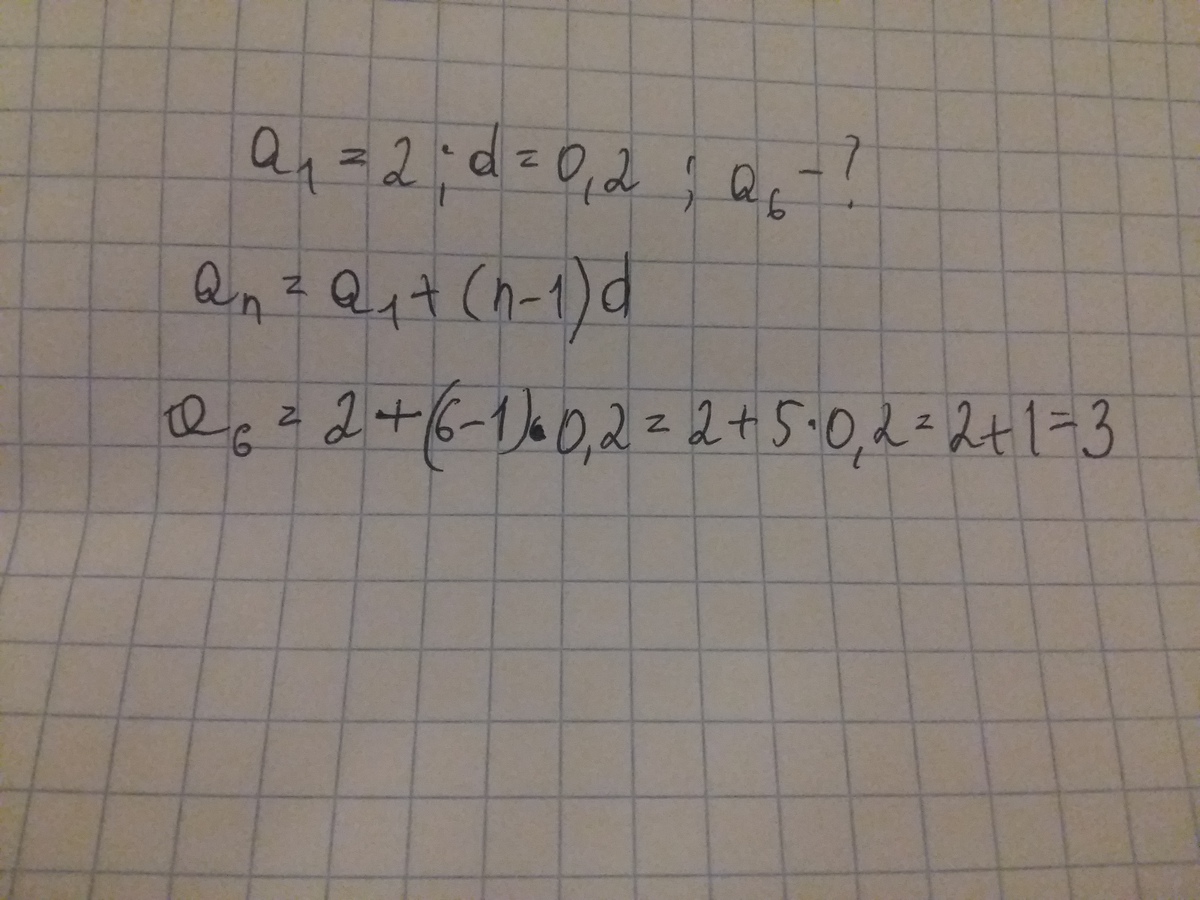 a₁ = 2 ; d = 0,2 ; a₆ - ?
aₙ = a₁ + (n-1)d
a₆ = 2 + (6-1)·0,2 = 2 + 5·0,2 = 2+1=3